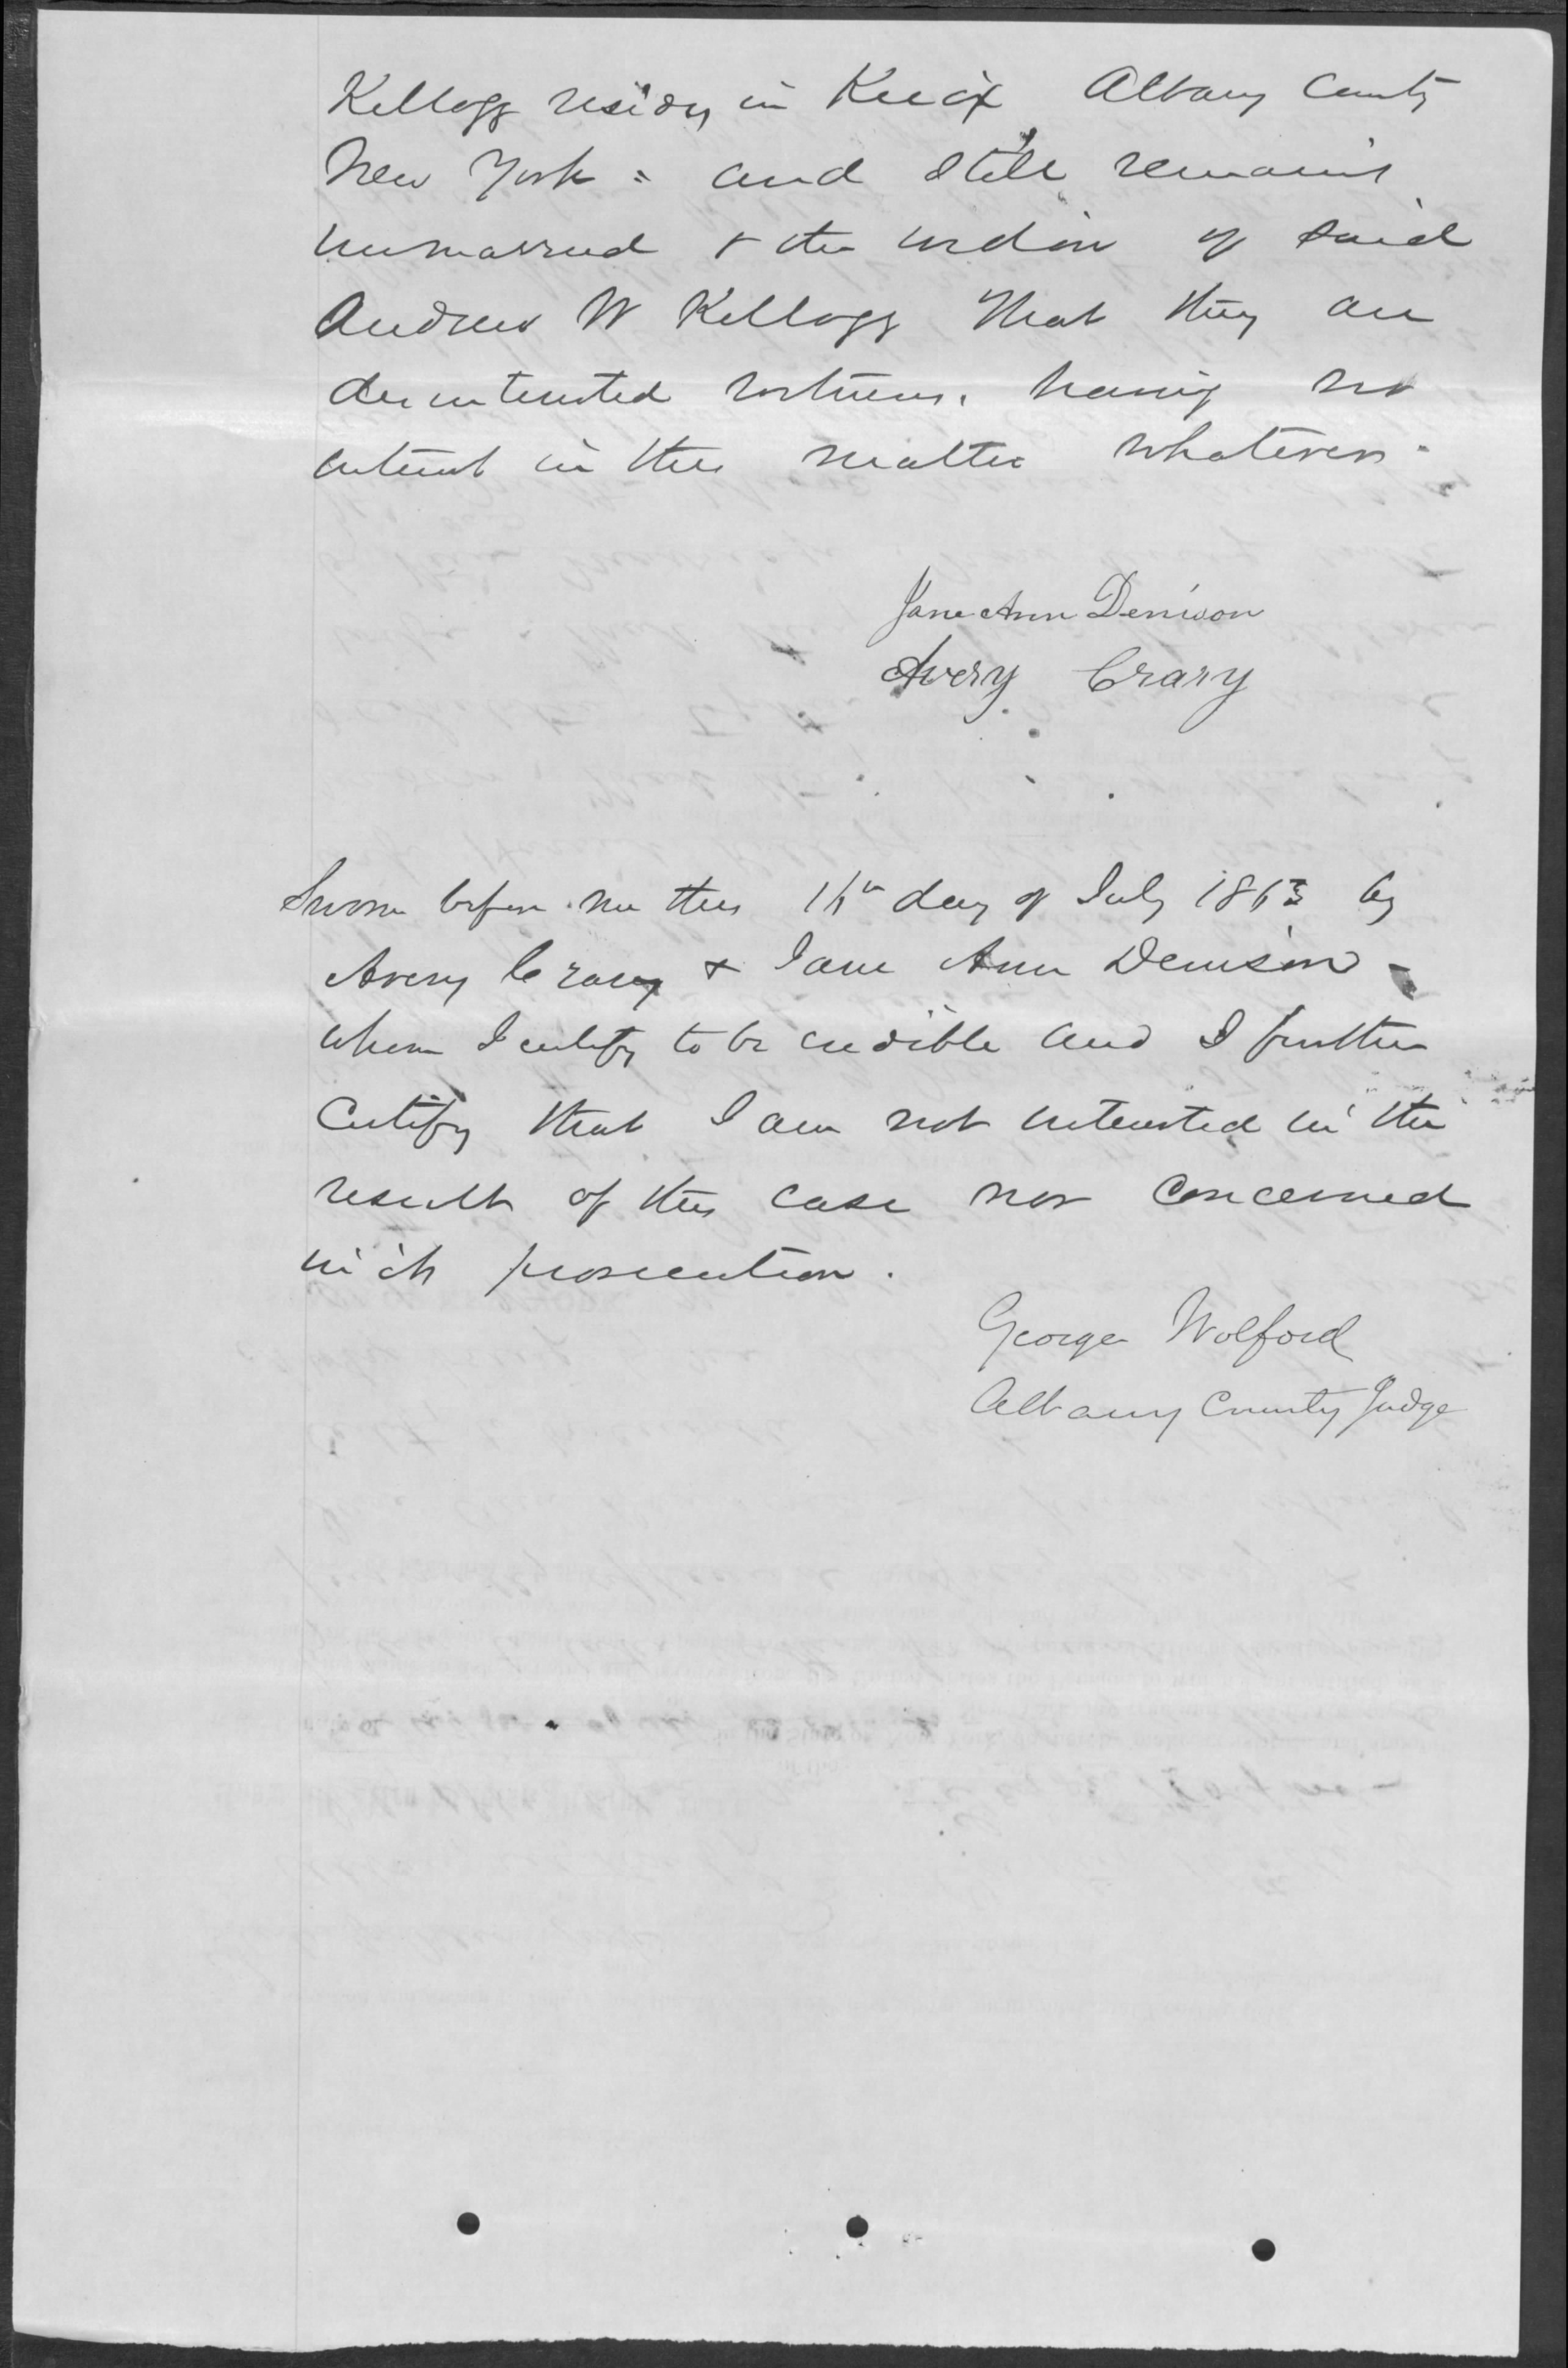 Kellogg resides in Knox, Albany County
New York = and still remains
unmarried & the widow of said
Andrew W Kellogg That they are
disinterested witnesses, having no
interest in this matter whatever.
Jane Ann Denison
Avery Crary
Sworn before me this day of July 1863 by
Avery Crary & Jane Ann Denison -
whom I certify to be credible and I further
Certify that I am not interested in the
result of this case nor concerned
in its prosecution.
George Wolford
Albany County Judge